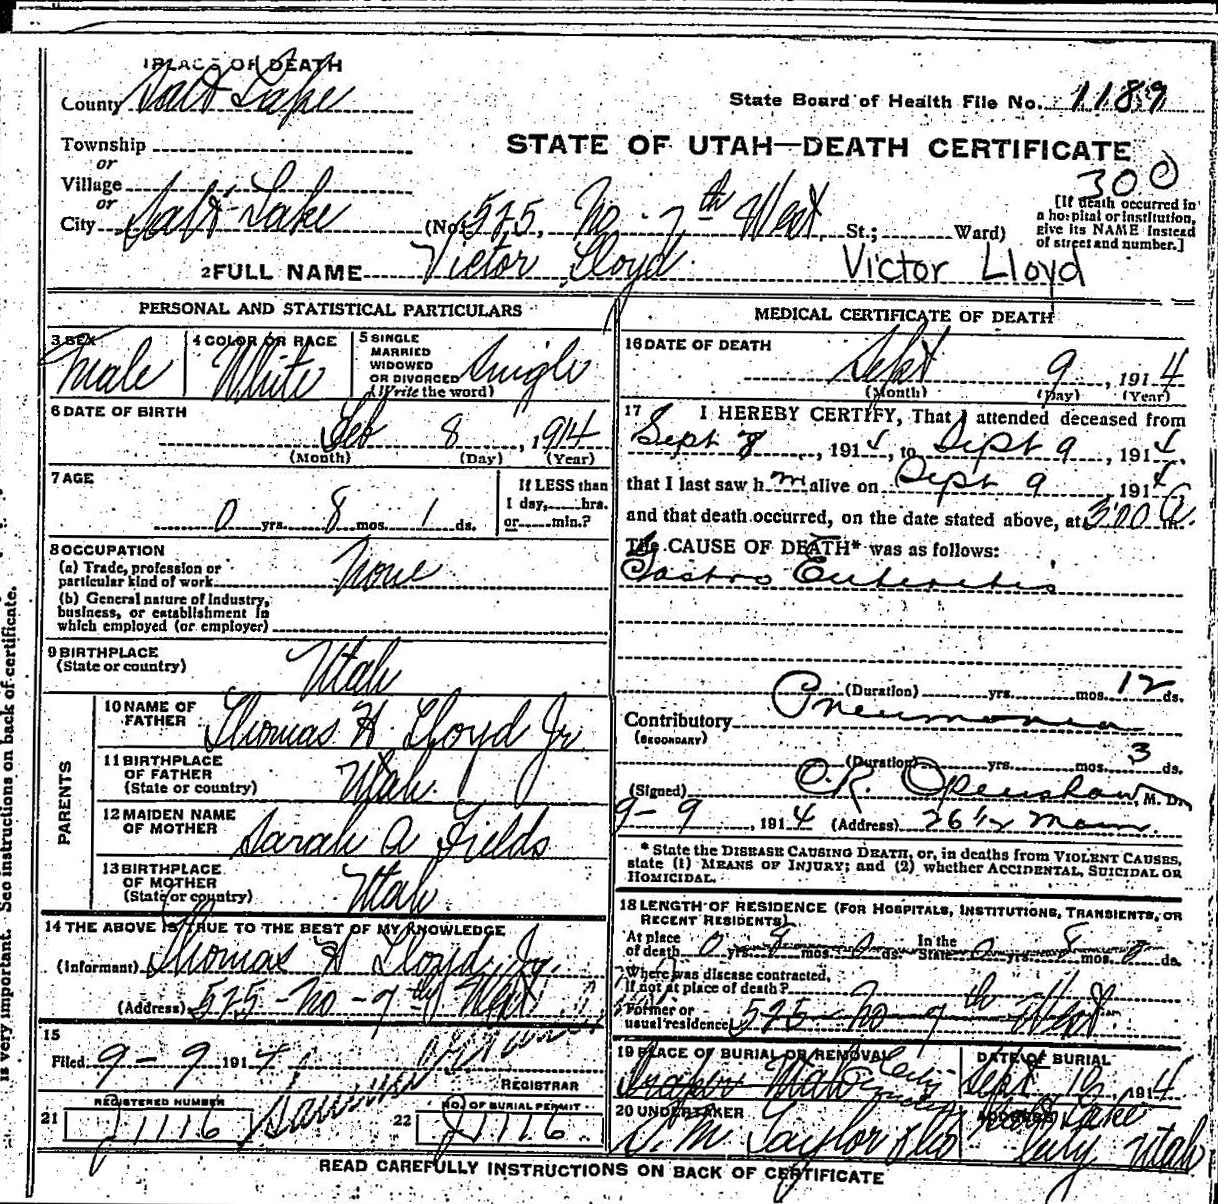 1 PLACE OF DEATH
County Salt Lake
State Board of Health File No. 1189
Township
or
Village
or
City Salt Lake
STATE OF UTAH—DEATH CERTIFICATE
300
(No. 525 No. 7th West St.; Ward)
[If death occurred in a hospital or institution, give its NAME instead of street and number.]
2 FULL NAME Victor Lloyd Victor Lloyd
PERSONAL AND STATISTICAL PARTICULARS
3 SEX
Male
4 COLOR OR RACE
White
5 SINGLE
MARRIED
WIDOWED
OR DIVORCED
(Write the word)
Single
6 DATE OF BIRTH
Feb 8, 1914
(Month) (Day) (Year)
7 AGE
0 yrs. 8 mos. 1 ds.
If LESS than
1 day, hrs.
or min.?
8 OCCUPATION
(a) Trade, profession or
particular kind of work None
(b) General nature of Industry,
business, or establishment in
which employed (or employer)
9 BIRTHPLACE
(State or country)
Utah
PARENTS
10 NAME OF
FATHER
Thomas H. Lloyd Jr.
11 BIRTHPLACE
OF FATHER
(State or country)
Utah
12 MAIDEN NAME
OF MOTHER
Sarah A Fields
13 BIRTHPLACE
OF MOTHER
(State or country)
Utah
14 THE ABOVE IS TRUE TO THE BEST OF MY KNOWLEDGE
(Informant) Thomas H Lloyd Jr.
(Address) 525-No-7th West
15
Filed 9-9 1914
REGISTRAR
21 REGISTERED NUMBER
J1116
22 NO. OF BURIAL PERMIT
J1116
MEDICAL CERTIFICATE OF DEATH
16 DATE OF DEATH
Sept 9, 1914
(Month) (Day) (Year)
17 I HEREBY CERTIFY, That I attended deceased from
Sept 8, 1914, to Sept 9, 1914,
that I last saw h m alive on Sept 9, 1914
and that death occurred, on the date stated above, at 3:00 A m.
The CAUSE OF DEATH* was as follows:
Gastro Enteretis
(Duration) yrs. mos. 12 ds.
Contributory Pneumonia
(SECONDARY)
(Duration) yrs. mos. 3 ds.
(Signed) O.R. Openshaw, M. D.
9-9, 1914 (Address) 26 1/2 Main
* State the DISEASE CAUSING DEATH, or, in deaths from VIOLENT CAUSES,
state (1) MEANS OF INJURY; and (2) whether ACCIDENTAL, SUICIDAL OR
HOMICIDAL.
18 LENGTH OF RESIDENCE (FOR HOSPITALS, INSTITUTIONS, TRANSIENTS, OR
RECENT RESIDENTS)
At place
of death 0 yrs. 8 mos. 0 ds.
In the
State 0 yrs. 8 mos. 0 ds.
Where was disease contracted,
if not at place of death?
Former or
usual residence 525 No 7th West
19 PLACE OF BURIAL OR REMOVAL
City
DATE OF BURIAL
Sept 10, 1914
20 UNDERTAKER
S. M. Taylor & Co
ADDRESS
Salt Lake
City Utah
READ CAREFULLY INSTRUCTIONS ON BACK OF CERTIFICATE
is very important. See instructions on back of certificate.